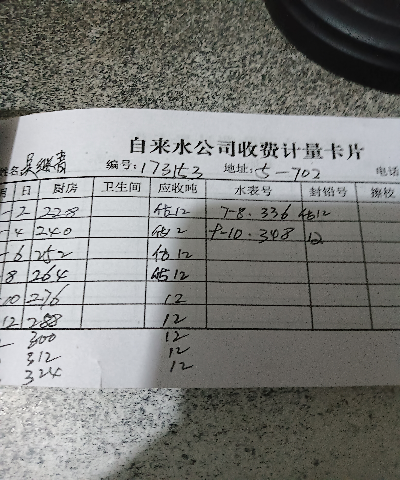 自来水公司收费计量卡片
姓名 吴继青 编号:173153 地址:5-702 电话
日 厨房 卫生间 应收吨 水表号 封铅号 接校
-2 228 12 7-8.336 12
-4 240 12 9-10.348 12
-6 252 12
-8 264 12
-10 276 12
-12 288 12
300 12
312 12
324 12